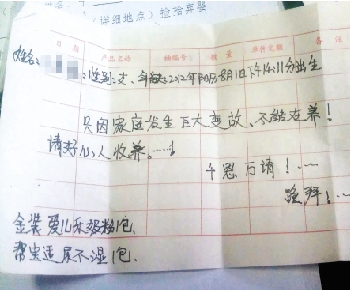 （详细地点）捡拾弃婴
日期 产品名称 编号 数量 单件定额 备注
姓名: 性别:女、年龄:2012年阴历8月1日下午14:11分出生
只因家庭发生巨大变故、不能养!
请好心人收养。……!
千恩万请!……
跪拜!……
金装爱儿乐奶粉1包
帮宝适尿不湿1包.